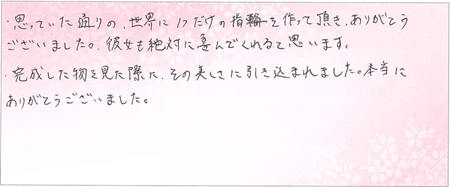 ・思っていた通りの、世界に1つだけの指輪を作って頂き、ありがとう
ございました。彼女も絶対に喜んでくれると思います。
・完成した物を見た際に、その美しさに引き込まれました。本当に
ありがとうございました。